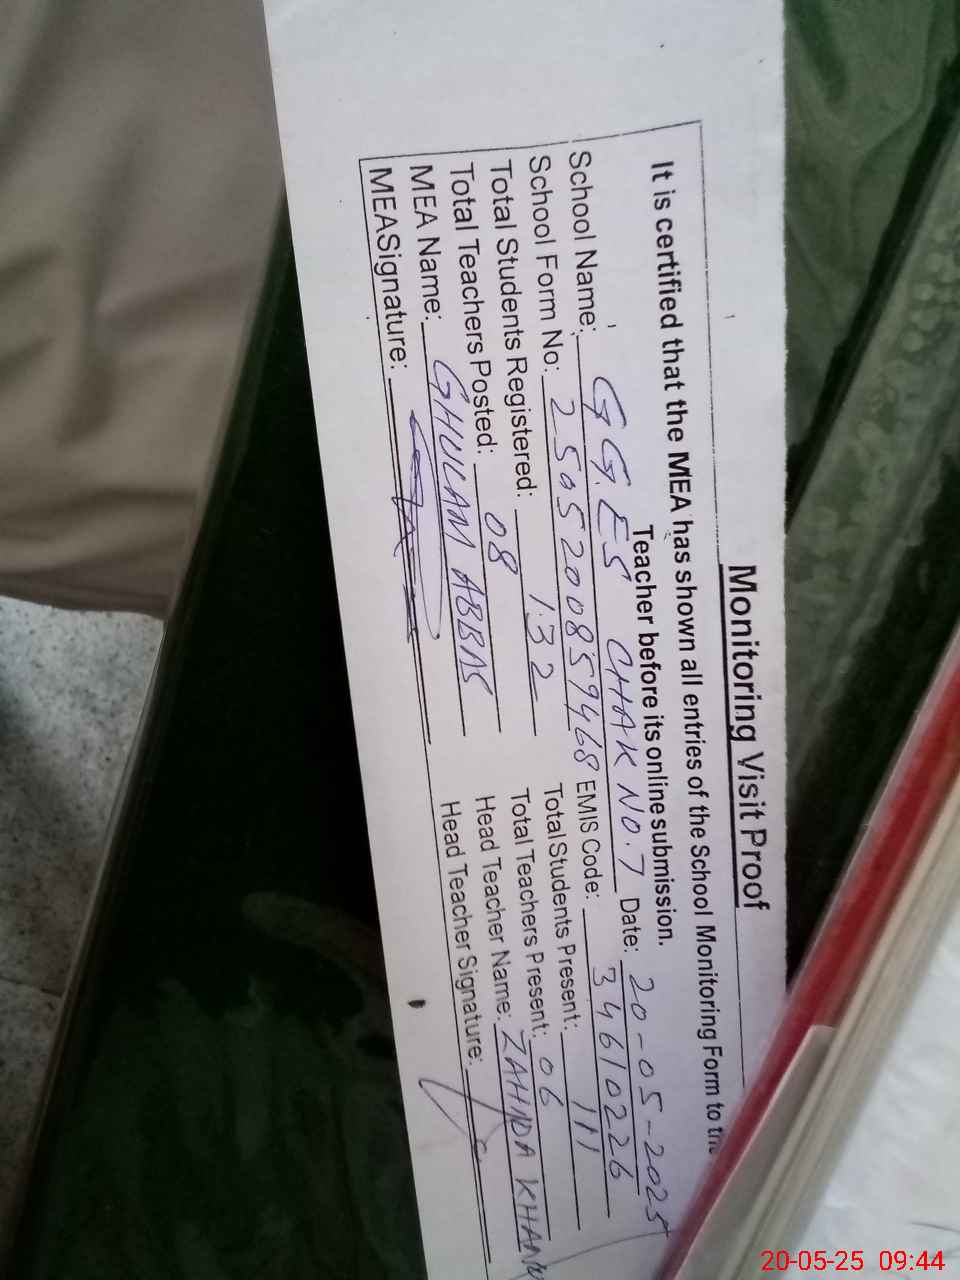 Monitoring Visit Proof
It is certified that the MEA has shown all entries of the School Monitoring Form to the
Teacher before its online submission.
School Name: GGES CHAK NO.7 Date: 20-05-2025
School Form No: 2505200859468 EMIS Code: 34610226
Total Students Registered: 132 Total Students Present: 111
Total Teachers Posted: 08 Total Teachers Present: 06
MEA Name: GHULAM ABBAS Head Teacher Name: ZAHIDA KHANM
MEASignature: Head Teacher Signature:
20-05-25 09:44